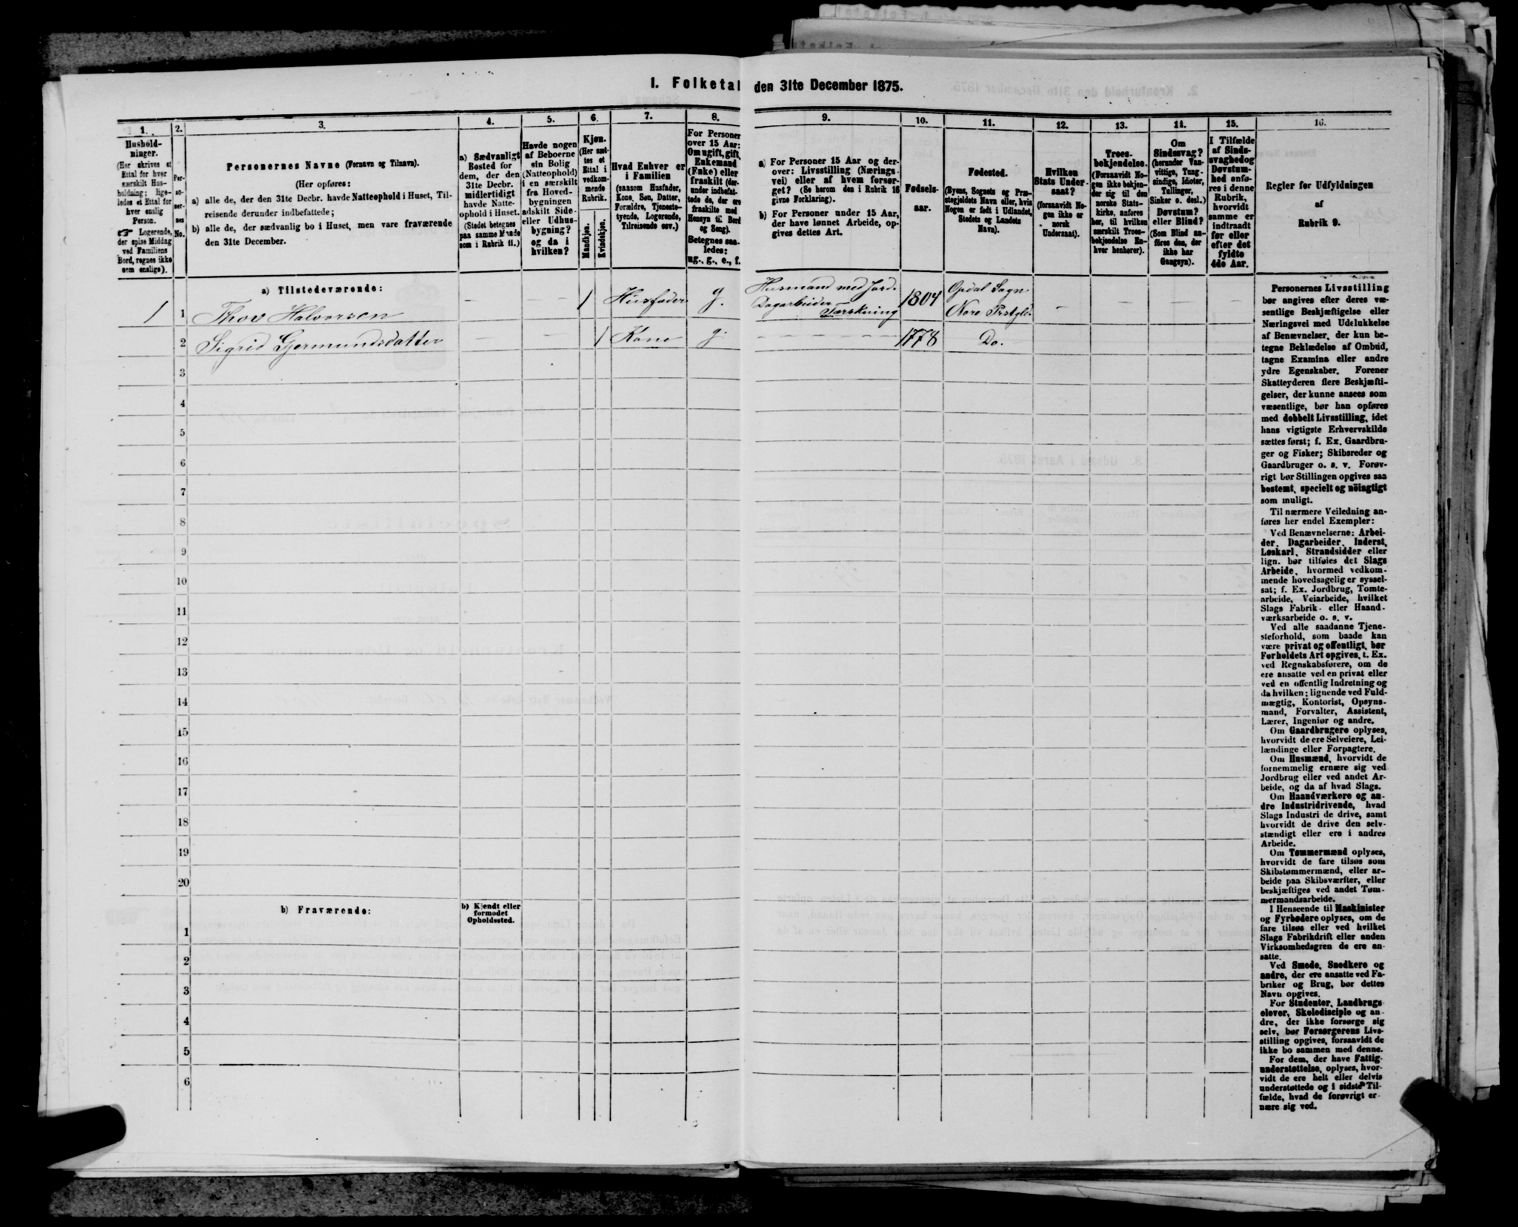 I. Folketal den 31te December 1875.
1.
Hushold-
ninger.
(Her skrives et
Ettal for hver
særskilt Hus-
holdning; lige-
ledes et Ettal for
hver enslig
Person.
Logerende,
der spise Middag
ved Familiens
Bord, regnes ikke
som enslige).
2.
Per-
so-
ner-
nes
No.
3.
Personernes Navne (Fornavn og Tilnavn).
(Her opføres:
a) alle de, der den 31te Decbr. havde Natteophold i Huset, Til-
reisende derunder indbefattede;
b) alle de, der sædvanlig bo i Huset, men vare fraværende
den 31te December.
4.
a) Sædvanligt
Bosted for
dem, der den
31te Decbr.
midlertidigt
havde Natte-
ophold i Huset.
(Stedet betegnes
paa samme Maade
som i Rubrik 11.)
5.
Havde nogen
af Beboerne
sin Bolig
(Natteophold)
i en særskilt
fra Hoved-
bygningen
adskilt Side-
eller Udhus-
bygning?
og da i
hvilken?
6.
Kjøn.
(Her sæt-
tes et
Ettal i
vedkom-
mende
Rubrik.
Mandkjøn.
Kvindekjøn.
7.
Hvad Enhver er
i Familien
(saasom Husfader,
Kone, Søn, Datter,
Forældre, Tjeneste-
tyende, Logerende,
Tilreisende osv.)
8.
For Personer
over 15 Aar:
Om ugift, gift,
Enkemand
(Enke) eller
fraskilt (der-
under indbefat-
tede de, der ere
fraskilte med
Hensyn til Bord
og Seng).
Betegnes saa-
ledes:
ug., g., e., f.
9.
a) For Personer 15 Aar og der-
over: Livsstilling (Nærings-
vei) eller af hvem forsør-
get? (Se herom den i Rubrik 16
givne Forklaring).
b) For Personer under 15 Aar,
der have lønnet Arbeide, op-
gives dettes Art.
10.
Fødsels-
aar.
11.
Fødested.
(Byens, Sognets og Præ-
stegjeldets Navn eller, hvis
Nogen er født i Udlandet,
Stedets og Landets
Navn).
12.
Hvilken
Stats Under-
saat?
(forsaavidt No-
gen ikke er
norsk
Undersaat).
13.
Troes-
bekjendelse.
(Forsaavidt No-
gen ikke bekjen-
der sig til den
norske Stats-
kirke, anføres
her, til hvilken
særskilt Troes-
bekjendelse En-
hver henhører).
14.
Om
Sindssvag?
(herunder Van-
vittige, Tung-
sindige, Idioter,
Tullinger,
Sinker o. desl.)
Døvstum?
eller Blind?
(Som Blind an-
føres den, der
ikke har
Gangsyn).
15.
I Tilfælde
af Sinds-
svaghed og
Døvstum-
hed anfø-
res i denne
Rubrik,
hvorvidt
samme er
indtraadt
før eller
efter det
fyldte
4de Aar.
16.
Regler for Udfyldningen
af
Rubrik 9.
a) Tilstedeværende:
1 1 Thov Halvorsen – – 1 Husfader g. Husmand med Jord. Dagarbeider Jordbrug 1804 Opdal Sogn Nore Prstgld. – – –
2 Sigrid Gjermundsdatter – – 1 Kone g. – – – 1778 Do. –
3
4
5
6
7
8
9
10
11
12
13
14
15
16
17
18
19
20
b) Fraværende:
b) Kjendt eller
formodet
Opholdssted.
1
2
3
4
5
6
Personernes Livsstilling
bør angives efter deres væ-
sentlige Beskjæftigelse eller
Næringsvei med Udelukkelse
af Benævnelser, der kun be-
tegne Beklædelse af Ombud,
tagne Examina eller andre
ydre Egenskaber. Forener
Skatteyderen flere Beskjæfti-
gelser, der kunne ansees som
væsentlige, bør han opføres
med dobbelt Livsstilling, idet
hans vigtigste Erhvervskilde
sættes først; f. Ex. Gaardbru-
ger og Fisker; Skibsreder og
Gaardbruger o. s. v. Forøv-
rigt bør Stillingen opgives saa
bestemt, specielt og nöiagtigt
som muligt.
Til nærmere Veiledning an-
føres her endel Exempler:
Ved Benævnelserne: Arbei-
der, Dagarbeider, Inderst,
Løskarl, Strandsidder eller
lign. bør tilføies det Slags
Arbeide, hvormed vedkom-
mende hovedsagelig er syssel-
sat; f. Ex. Jordbrug, Tomte-
arbeide, Veiarbeide, hvilket
Slags Fabrik- eller Haand-
værksarbeide o. s. v.
Ved alle saadanne Tjene-
steforhold, som baade kan
være privat og offentligt, bør
Forholdets Art opgives, t. Ex.
ved Regnskabsførere, om de
ere ansatte ved en privat eller
ved en offentlig Indretning og
da hvilken; lignende ved Fuld-
mægtig, Kontorist, Opsyns-
mand, Forvalter, Assistent,
Lærer, Ingeniør og andre.
Om Gaardbrugere oplyses,
hvorvidt de ere Selveiere, Lei-
lændinge eller Forpagtere.
Om Husmænd, hvorvidt de
fornemmelig ernære sig ved
Jordbrug eller ved andet Ar-
beide, og da af hvad Slags.
Om Haandværkere og an-
dre Industridrivende, hvad
Slags Industri de drive, samt
hvorvidt de drive den selv-
stændigt eller ere i andres
Arbeide.
Om Tømmermænd oplyses,
hvorvidt de fare tilsøs som
Skibstømmermænd, eller ar-
beide paa Skibsværfter, eller
beskjæftiges ved andet Tøm-
mermandsarbeide.
I Henseende til Maskinister
og Fyrbødere oplyses, om de
fare tilsøs eller ved hvilket
Slags Fabrikdrift eller anden
Virksomhedsgren de ere an-
satte.
Ved Smede, Snedkere og
andre, der ere ansatte ved Fa-
briker og Brug, bør dettes
Navn opgives.
For Studenter, Landbrugs-
elever, Skoledisciple og an-
dre, der ikke forsørge sig
selv, bør Forsørgerens Livs-
stilling opgives, forsaavidt de
ikke bo sammen med denne.
For dem, der have Fattig-
understøttelse, oplyses, hvor-
vidt de ere helt eller delvis
understøttede og i sidste Til-
fælde, hvad de forøvrigt er-
nære sig ved.